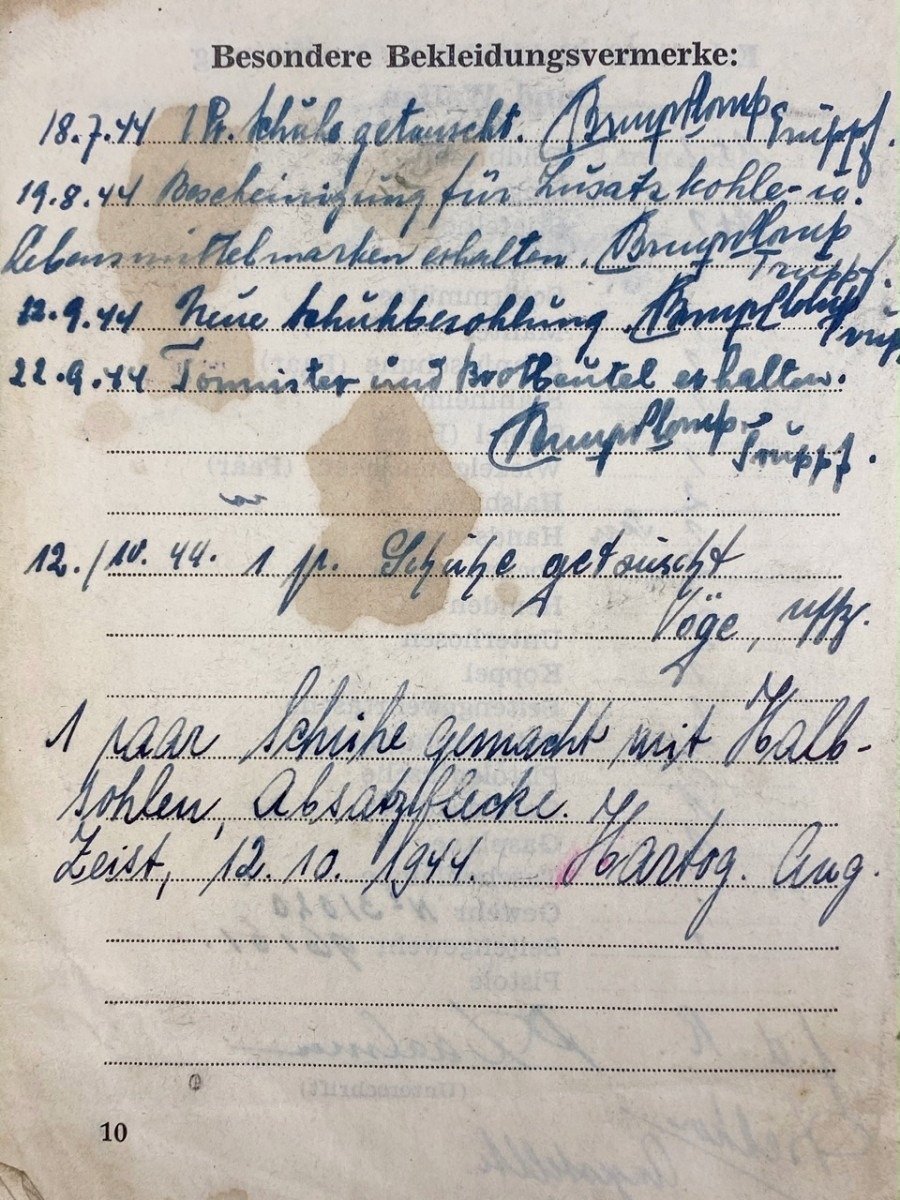 Besondere Bekleidungsvermerke:
18.7.44 1 Pr. Schuhe getauscht. Truppf.
19.8.44 Bescheinigung für Zusatzkohle- u.
Lebensmittelmarken erhalten. Truppf.
12.9.44 Neue Schuhbesohlung.
22.9.44 Tornister und Brotbeutel erhalten.
Truppf.
12./10. 44. 1 pr. Schuhe getauscht
Vöge, Uffz.
1 paar Schuhe gemacht mit Halb-
sohlen, Absatzflecke.
Zeist, 12.10.1944. Hartog. Aug.
10